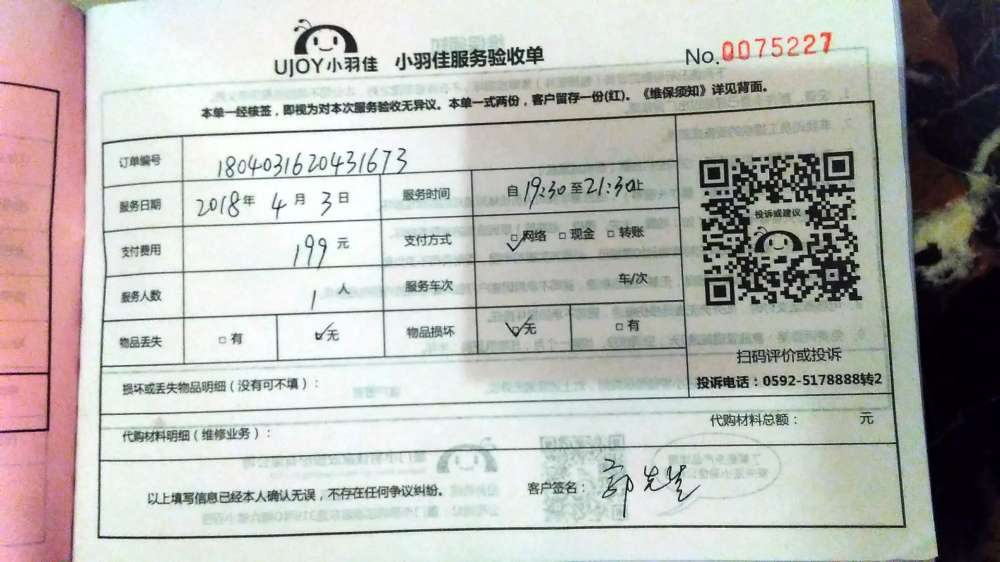 UJOY小羽佳 小羽佳服务验收单 No.0075227
本单一经核签，即视为对本次服务验收无异议。本单一式两份，客户留存一份(红)。《维保须知》详见背面。
订单编号 1804031620431673
服务日期 2018年 4月 3日 服务时间 自19:30至21:30止
支付费用 199元 支付方式 ☑网络 □现金 □转账
服务人数 1人 服务车次 车/次
物品丢失 □有 ☑无 物品损坏 ☑无 □有
投诉或建议
扫码评价或投诉
投诉电话：0592-5178888转2
损坏或丢失物品明细（没有可不填）：
代购材料明细（维修业务）： 代购材料总额： 元
以上填写信息已经本人确认无误，不存在任何争议纠纷。 客户签名：郭先生